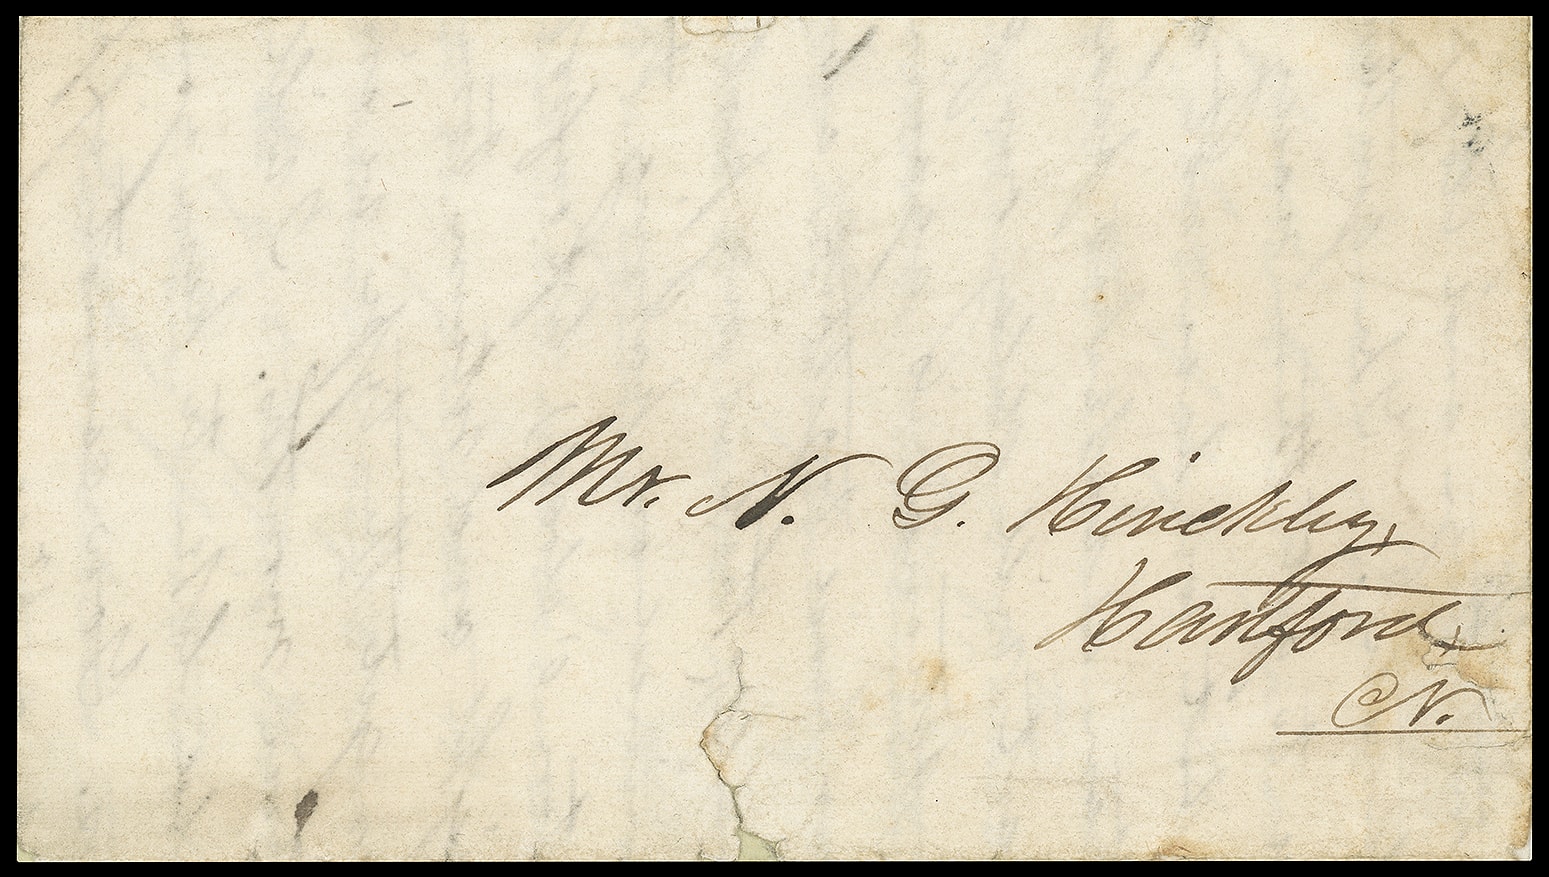 Mr. N. G. Hinckly,
Hartford,
N.